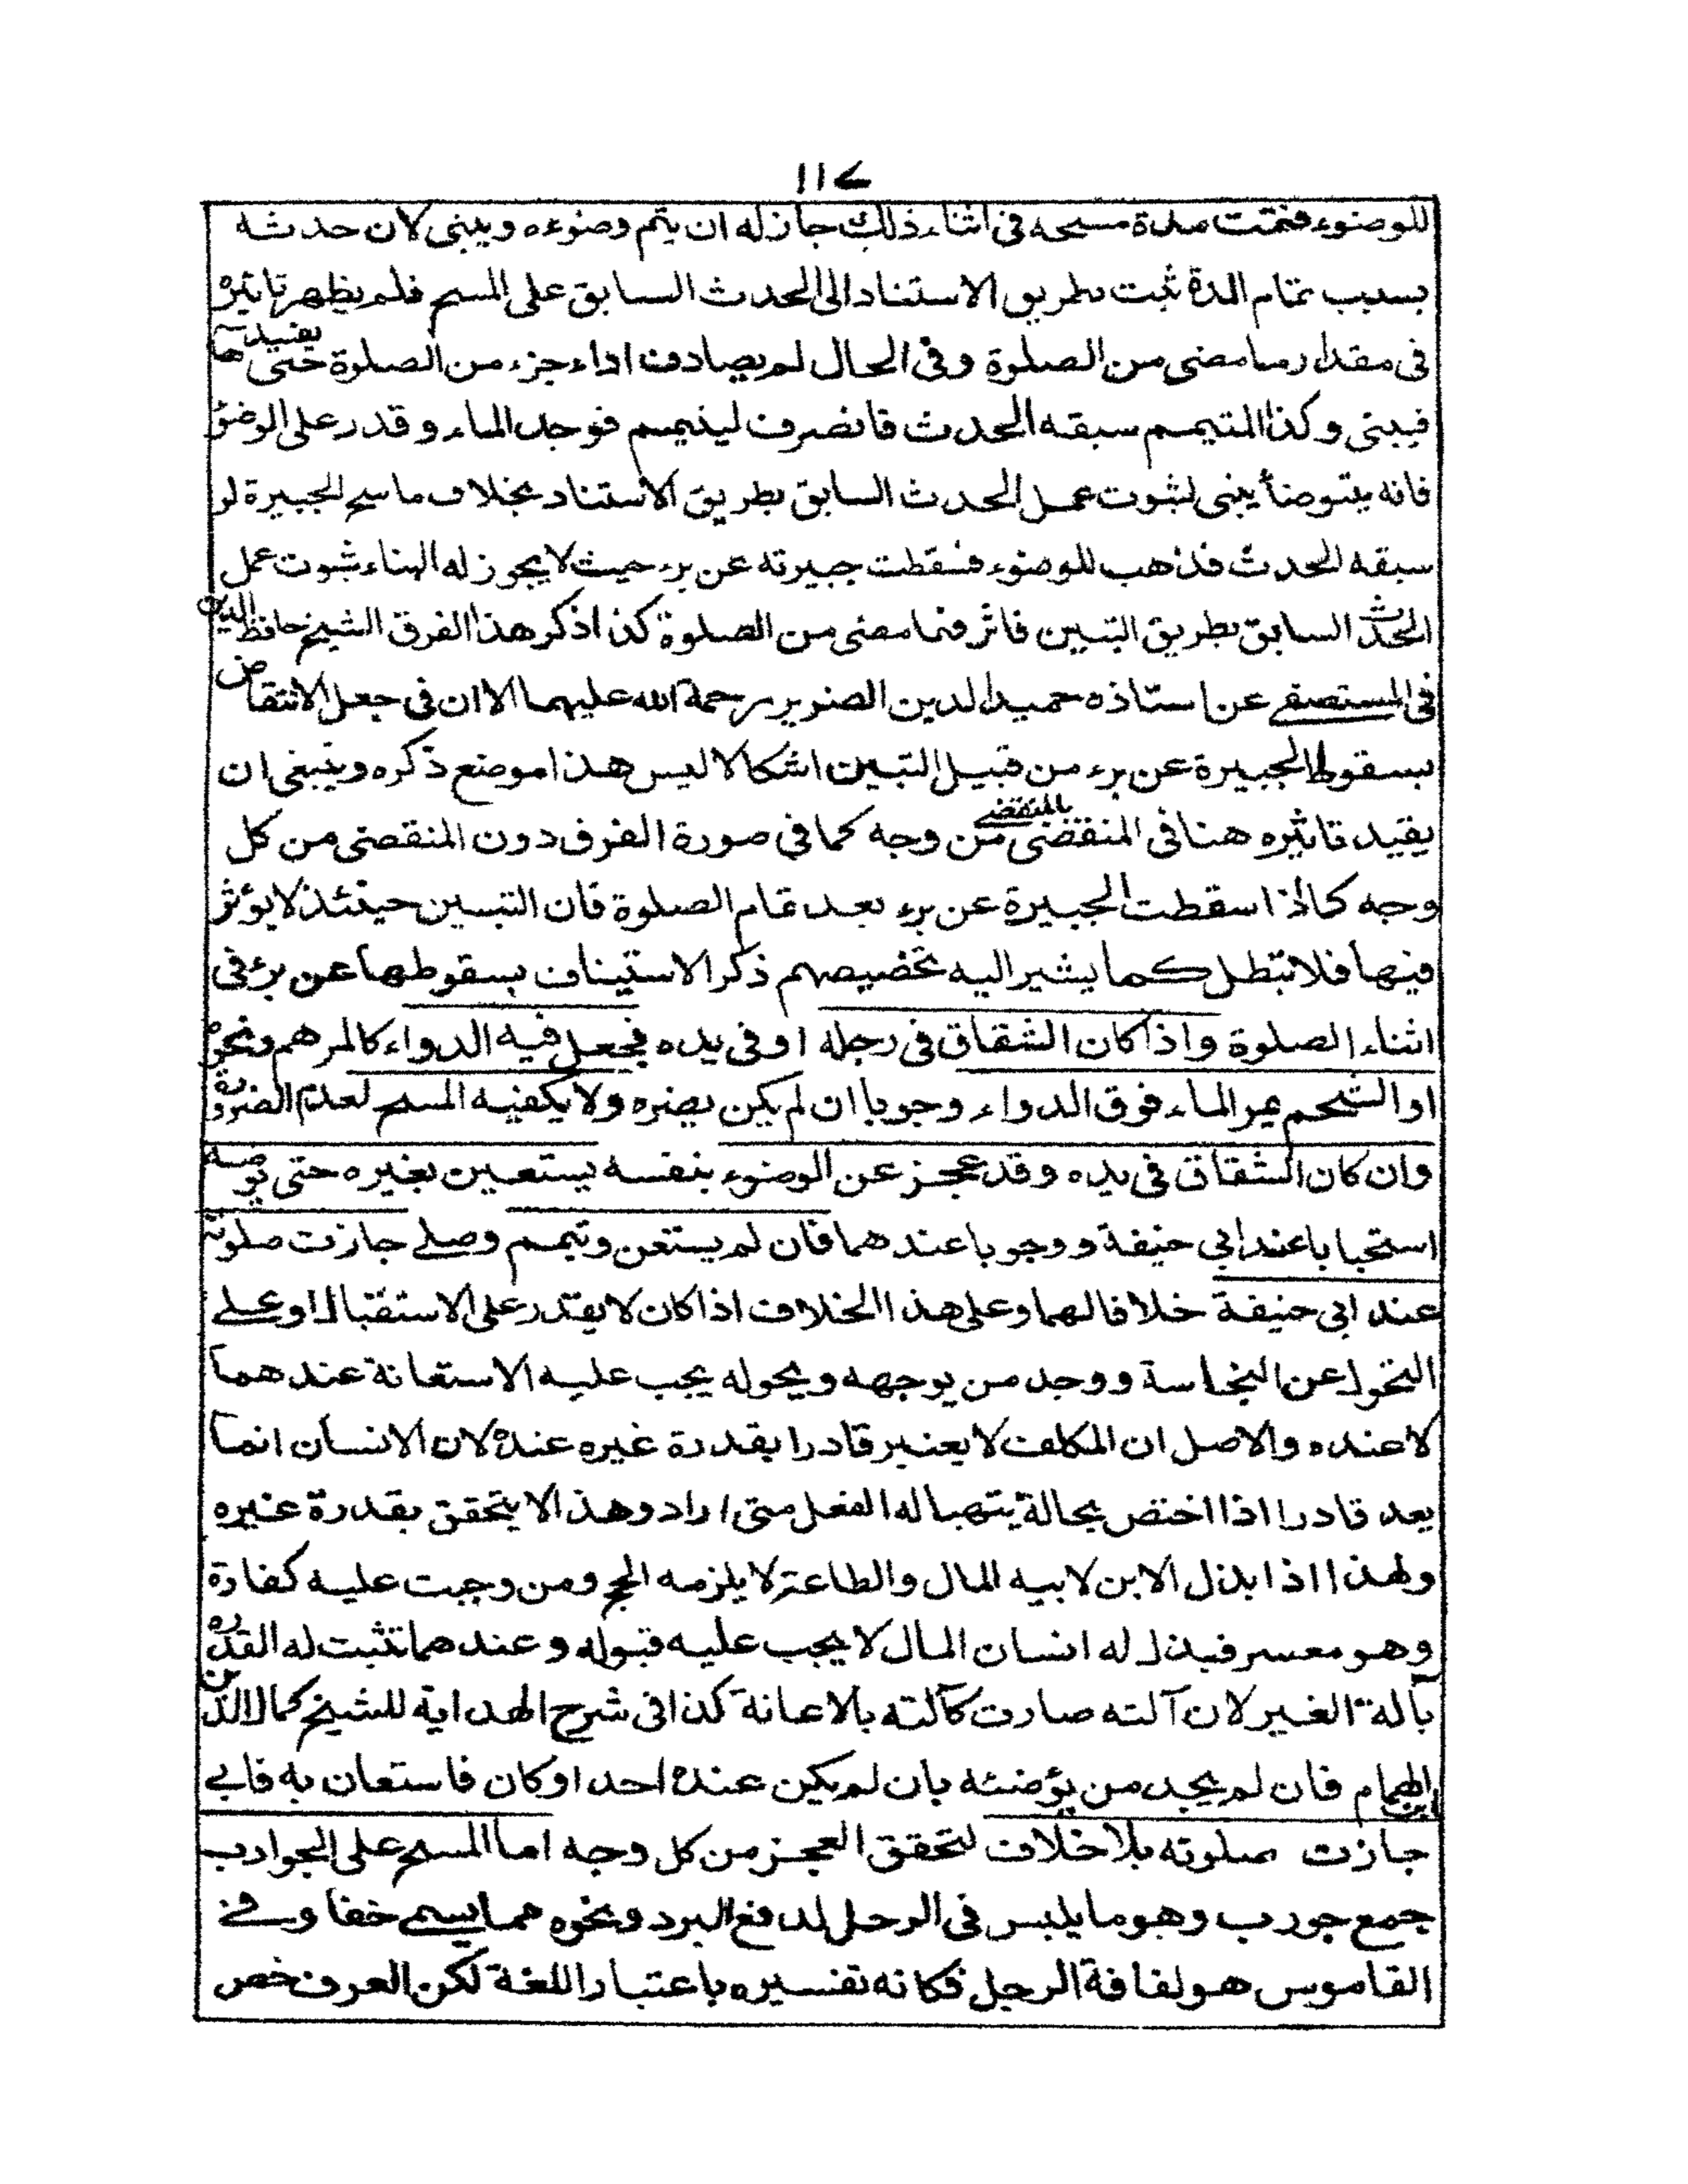 ١١٧
للوضوء فتمت مدة مسحه فى اثناء ذلك جاز له ان يتم وضوءه ويبنى لان حدثه
بسبب تمام المدة ثبت بطريق الاستناد الى الحدث السابق على المسح فلم يظهر تاثيره
فى مقدار ما مضى من الصلوة وفى الحال لم يصادف اداء جزء من الصلوة حتى يفسدها
فيبنى وكذا المتيمم سبقه الحدث فانصرف ليتيمم فوجد الماء وقدر على الوضؤ
فانه يتوضأ يبنى لثبوت عمل الحدث السابق بطريق الاستناد بخلاف ماسح الجبيرة لو
سبقه الحدث فذهب للوضوء فسقطت جبيرته عن برء حيث لا يجوز له البناء ثبوت عمل
الحدث السابق بطريق التبين فاثر فيما مضى من الصلوة كذا ذكر هذا الفرق الشيخ حافظ الدين
فى المستصفى عن استاذه حميد الدين الضرير رحمة الله عليهما الا ان فى جعل الانتقاض
بسقوط الجبيرة عن برء من قبيل التبين اشكالا ليس هذا موضع ذكره وينبغى ان
يقيد تاثيره هنا فى المنقضى من وجه كما فى صورة الفرق دون المنقضى من كل
بالمنقضے
وجه كما اذا سقطت الجبيرة عن برء بعد تمام الصلوة فان التبين حينئذ لا يؤثر
فيها فلا تبطل كما يشير اليه تخصيصهم ذكر الاستيناف بسقوطها عن برء فى
اثناء الصلوة واذا كان الشقاق فى رجله او فى يده فجعل فيه الدواء كالمرهم ونحوه
او الشحم يمر الماء فوق الدواء وجوبا ان لم يكن يضره ولا يكفيه المسح لعدم الضرورة
وان كان الشقاق فى يده وقد عجز عن الوضوء بنفسه يستعين بغيره حتى يوضيه
استحبابا عند ابي حنيفة ووجوبا عندهما فان لم يستعن وتيمم وصلے جازت صلوته
عند ابى حنيفة خلافا لهما وعلى هذا الخلاف اذا كان لا يقدر على الاستقبال او علے
التحول عن النجاسة ووجد من يوجهه ويحوله يجب عليه الاستعانة عندهما
لا عنده والاصل ان المكلف لا يعتبر قادرا بقدرة غيره عنده لان الانسان انما
يعد قادرا اذا اختص بحالة يتهيا له الفعل متى اراد وهذا لا يتحقق بقدرة غيره
ولهذا اذا بذل الابن لابيه المال والطاعة لا يلزمه الحج ومن وجبت عليه كفارة
وهو معسر فبذل له انسان المال لا يجب عليه قبوله وعندهما تثبت له القدرة
بآلة الغير لان آلته صارت كآلته بالاعانة كذا فى شرح الهداية للشيخ كمال الدين
ابن الهمام فان لم يجد من يوضئه بان لم يكن عنده احد او كان فاستعان به فابے
جازت صلوته بلا خلاف لتحقق العجز من كل وجه اما المسح على الجوارب
جمع جورب وهو ما يلبس فى الرجل لدفع البرد ونحوه مما يسمى خفا وفے
القاموس هو لفافة الرجل فكانه تفسيره باعتبار اللغة لكن العرف خص